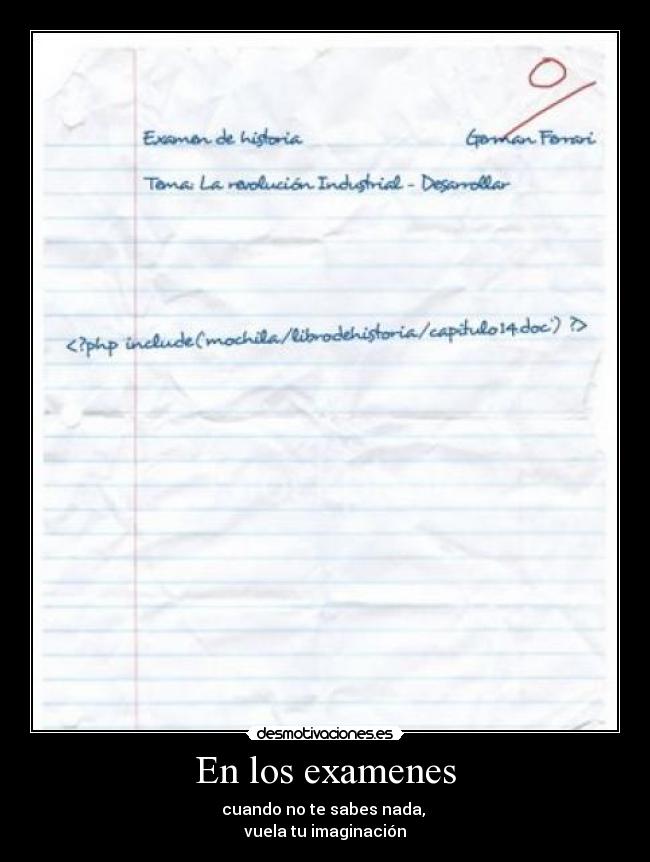 0
Examen de historia German Ferrari
Tema: La revolución Industrial - Desarrollar
<?php include('mochila/librodehistoria/capitulo14.doc') ?>
desmotivaciones.es
En los examenes
cuando no te sabes nada,
vuela tu imaginación